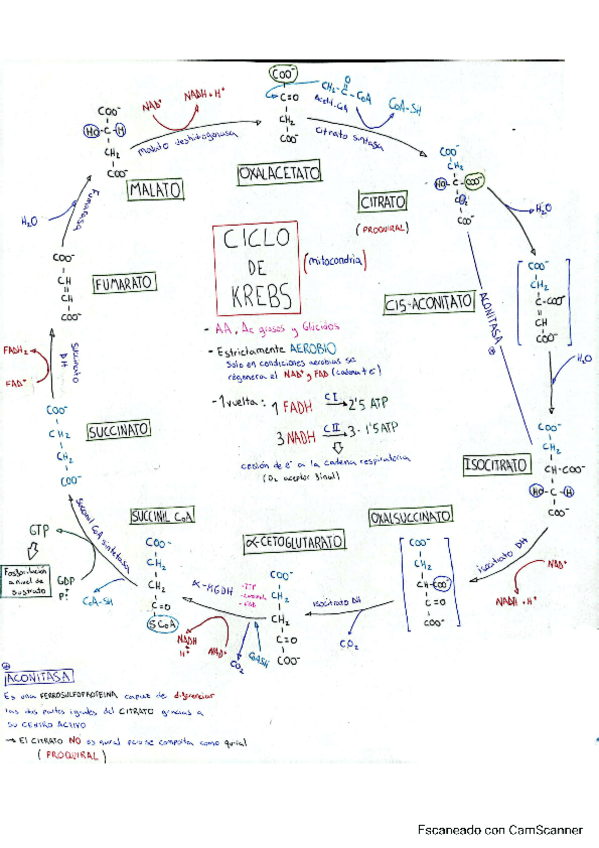 COO⁻
C=O
CH₂
COO⁻
OXALACETATO
CH₂-C-CoA
O
Acetil-CoA
CoA-SH
Citrato sintasa
NAD⁺
NADH+H⁺
Malato deshidrogenasa
COO⁻
HO-C-H
CH₂
COO⁻
MALATO
Fumarasa
H₂O
COO⁻
CH₂
HO-C-COO⁻
CH₂
COO⁻
CITRATO
(PROQUIRAL)
H₂O
CICLO
DE
KREBS
(mitocondria)
COO⁻
CH
CH
COO⁻
FUMARATO
CIS-ACONITATO
COO⁻
CH₂
C-COO⁻
CH
COO⁻
ACONITASA
H₂O
- AA, Ac grasos y Glúcidos
- Estrictamente AEROBIO
Solo en condiciones aerobias se
regenera el NAD⁺ y FAD (cadena t e⁻)
- 1 vuelta: 1 FADH CI 2'5 ATP
3 NADH CII 3· 1'5 ATP
cesión de e⁻ a la cadena respiratoria
(O₂ aceptor final)
FADH₂
FAD⁺
Succinato
DH
COO⁻
CH₂
CH₂
COO⁻
SUCCINATO
COO⁻
CH₂
CH-COO⁻
HO-C-H
COO⁻
ISOCITRATO
isocitrato DH
NAD⁺
NADH+H⁺
OXALSUCCINATO
COO⁻
CH₂
CH-COO⁻
C=O
COO⁻
isocitrato DH
CO₂
α-CETOGLUTARATO
COO⁻
CH₂
CH₂
C=O
COO⁻
α-KGDH
-TPP
-FAD
NADH
H⁺
NAD⁺
CO₂
CoASH
SUCCINIL CoA
COO⁻
CH₂
CH₂
C=O
SCoA
Succinil CoA sintetasa
GTP
GDP
Pi
CoA-SH
Fosforilación
a nivel de
sustrato
ACONITASA
Es una FERROSULFOPROTEÍNA capaz de diferenciar
las dos partes iguales del CITRATO gracias a
su CENTRO ACTIVO
→ EL CITRATO NO es quiral pero se comporta como quiral
(PROQUIRAL)
Escaneado con CamScanner